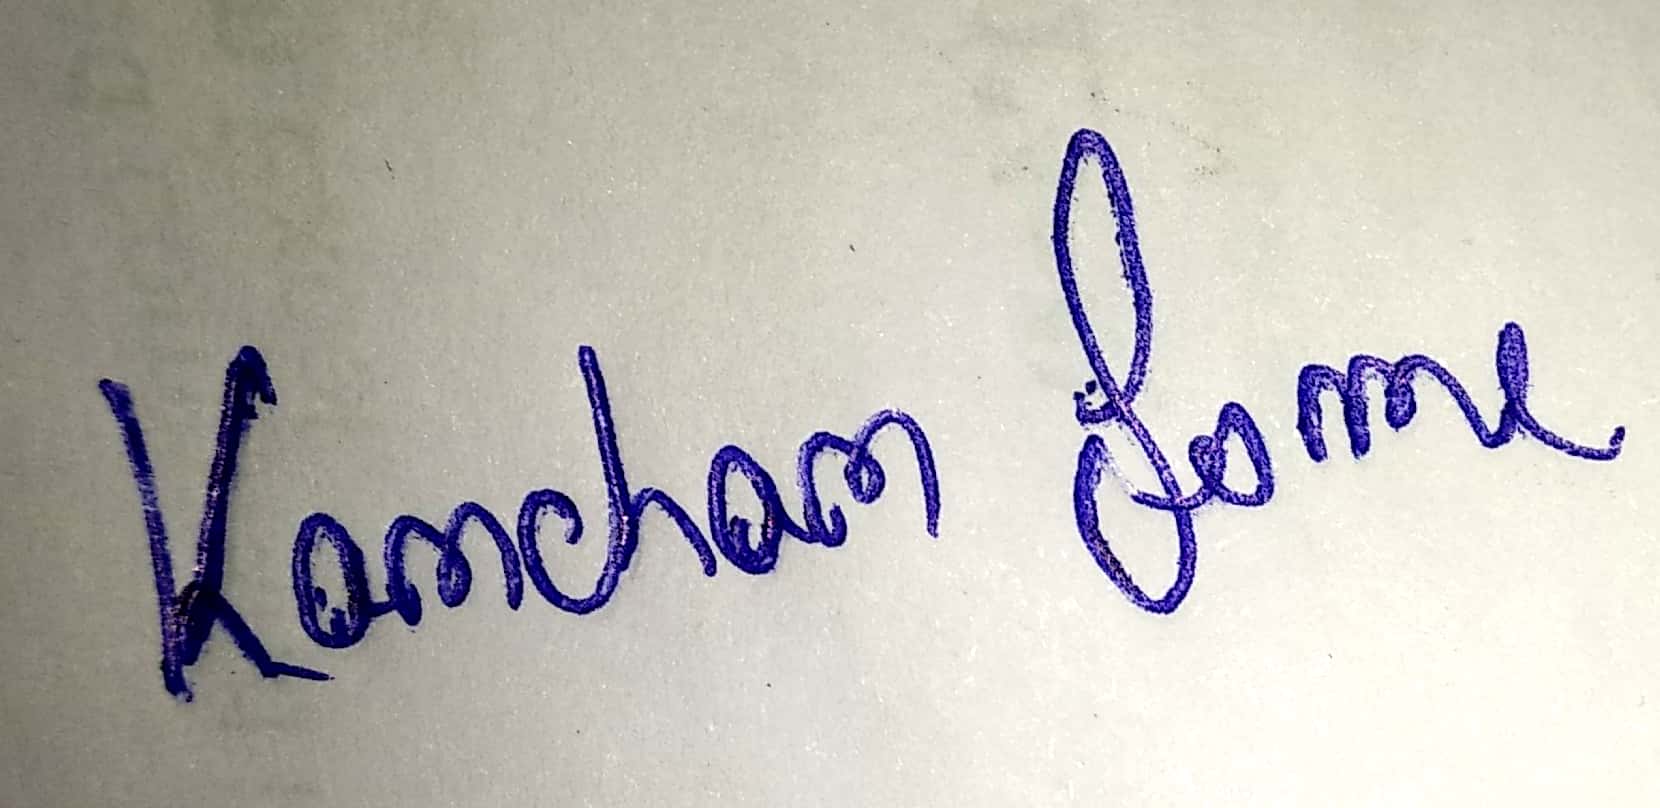 Kanchan Some